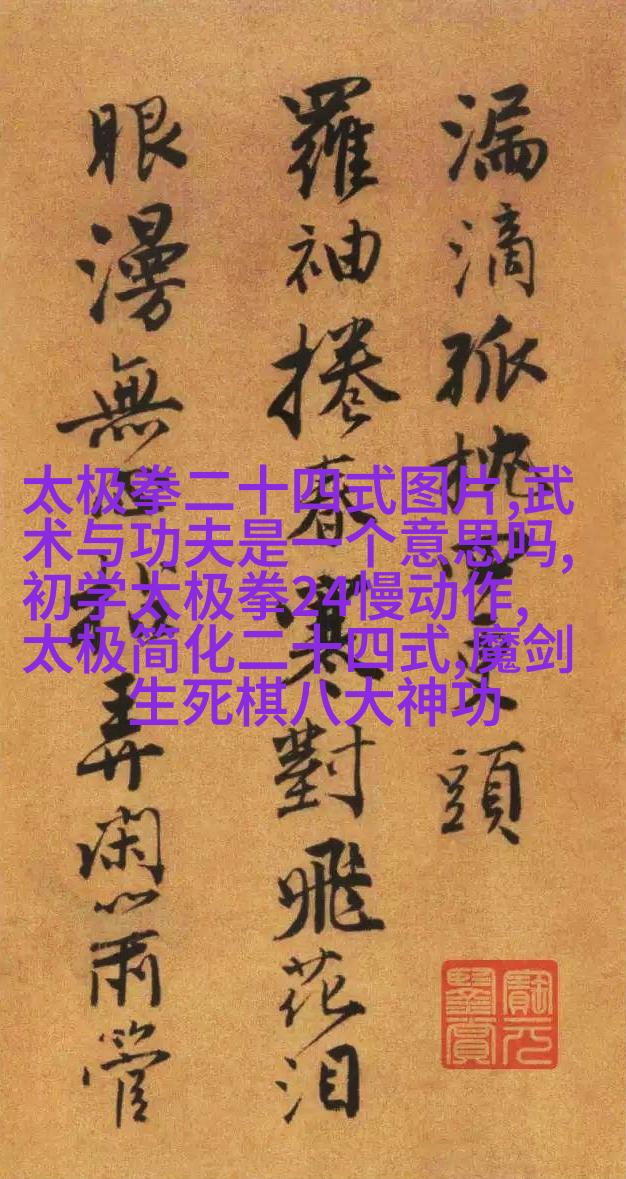 漏滴孤頭
羅袖捲春寒對飛花泪
眼漫無弄闲心兩管
太极拳二十四式图片,武
术与功夫是一个意思吗,
初学太极拳24慢动作,
太极简化二十四式,魔剑
生死棋八大神功